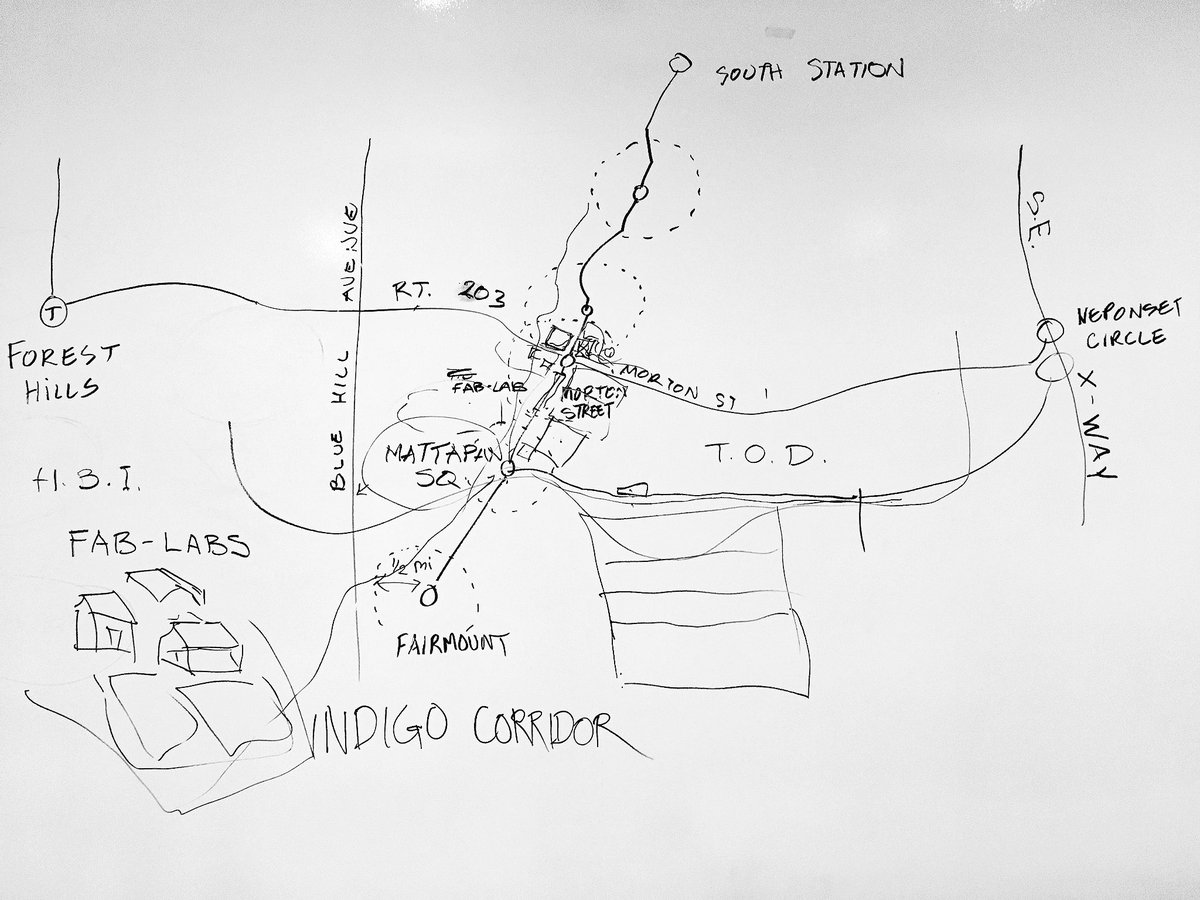 SOUTH STATION
S.E.
X-WAY
NEPONSET
CIRCLE
BLUE HILL AVENUE
RT. 203
T
FOREST
HILLS
FAB-LAB
MORTON ST
MORTON
STREET
MATTAPAN
SQ.
T.O.D.
H.B.I.
FAB-LABS
1/2 mi
FAIRMOUNT
INDIGO CORRIDOR